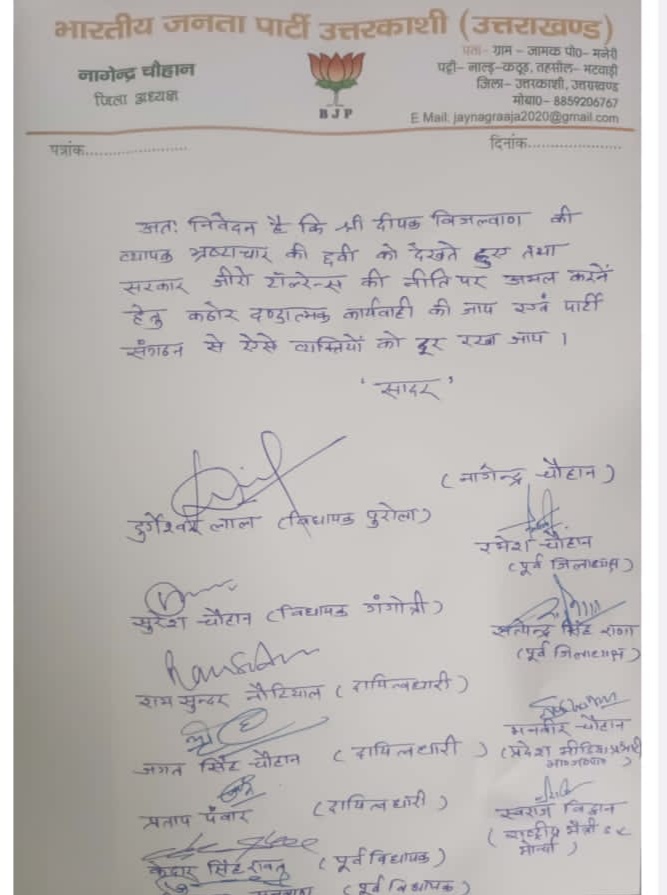 भारतीय जनता पार्टी उत्तरकाशी (उत्तराखण्ड)
नागेन्द्र चौहान
जिला अध्यक्ष
BJP
पता- ग्राम - जामक पो0- मनेरी
पट्टी- नाल्ड-कठूड़, तहसील- भटवाड़ी
जिला- उत्तरकाशी, उत्तराखण्ड
मो0- 8859206767
E Mail: jaynagraaja2020@gmail.com
पत्रांक.....................
दिनांक...................
अतः निवेदन है कि श्री दीपक बिजल्वाण की
व्यापक भ्रष्टाचार की छवी को देखते हुए तथा
सरकार जीरो टॉलरेन्स की नीति पर अमल करने
हेतु कठोर दण्डात्मक कार्यवाही की जाय एवं पार्टी
संगठन से ऐसे व्यक्तियों को दूर रखा जाय ।
' सादर '
(नागेन्द्र चौहान)
दुर्गेश्वर लाल (विधायक पुरोला)
रमेश चौहान
(पूर्व जिलाध्यक्ष)
सुरेश चौहान (विधायक गंगोत्री)
सत्येन्द्र सिंह राणा
(पूर्व जिलाध्यक्ष)
राम सुन्दर नौटियाल (दायित्वधारी)
मनवीर चौहान
(प्रदेश मीडिया प्रभारी
भा०ज०पा०)
जगत सिंह चौहान (दायित्वधारी)
प्रताप पंवार (दायित्वधारी)
स्वराज विद्वान
(राष्ट्रीय मंत्री
मोर्चा)
केदार सिंह रावत (पूर्व विधायक)
(पूर्व विधायक)